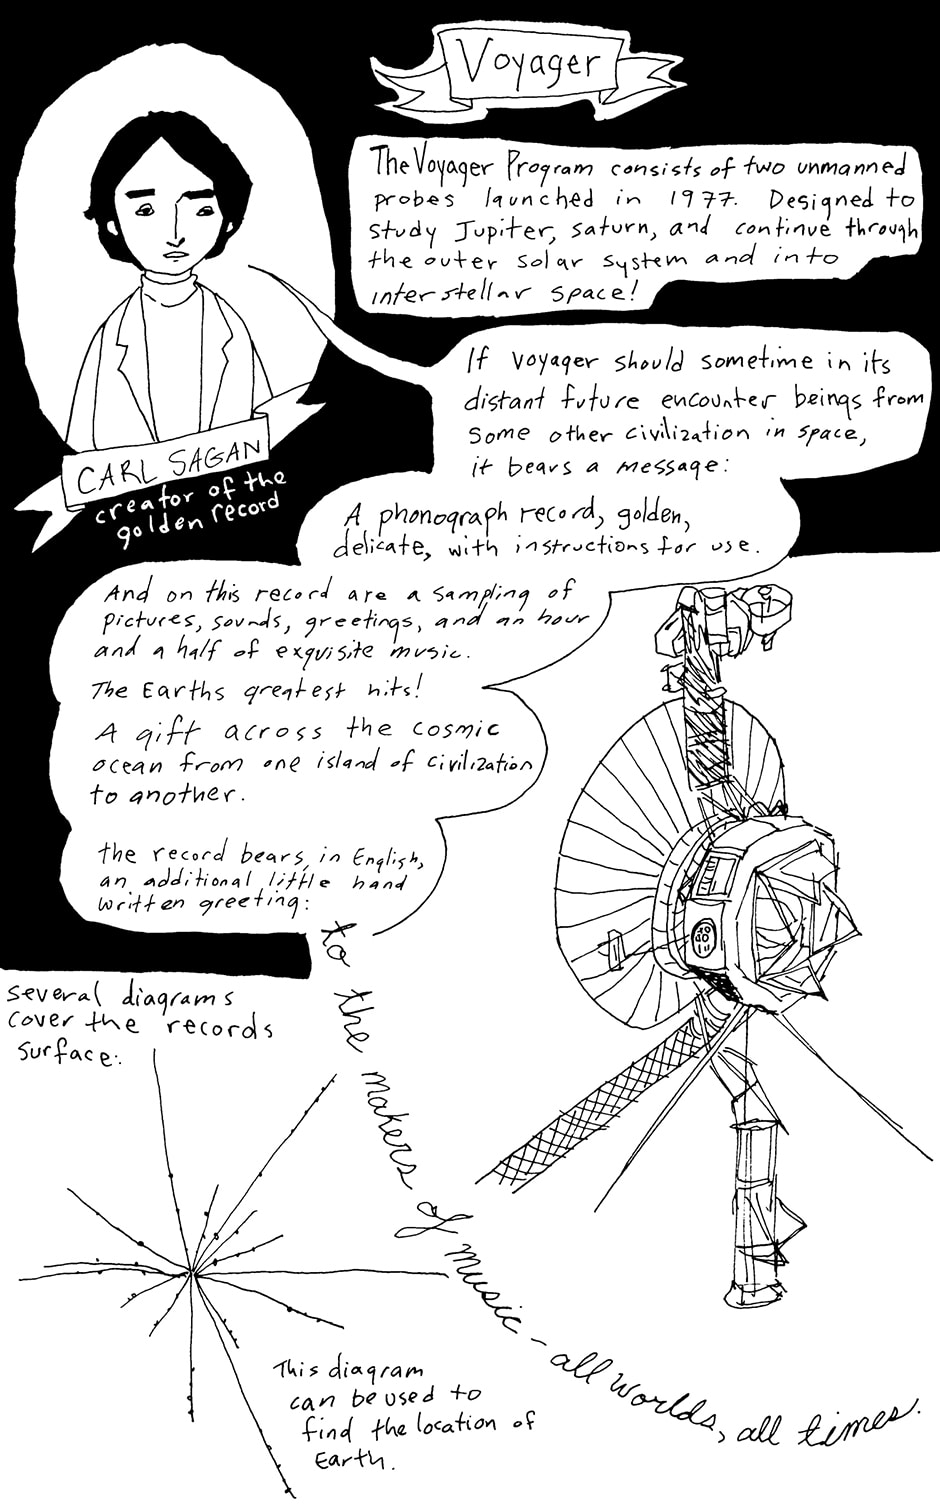 Voyager
The Voyager Program consists of two unmanned
probes launched in 1977. Designed to
study Jupiter, saturn, and continue through
the outer solar system and into
interstellar space!
CARL SAGAN
creator of the
golden record
If voyager should sometime in its
distant future encounter beings from
some other civilization in space,
it bears a message:
A phonograph record, golden,
delicate, with instructions for use.
And on this record are a sampling of
pictures, sounds, greetings, and an hour
and a half of exquisite music.
The Earths greatest hits!
A gift across the cosmic
ocean from one island of civilization
to another.
the record bears, in English,
an additional little hand
written greeting:
to the makers of music - all worlds, all times.
several diagrams
cover the records
surface:
This diagram
can be used to
find the location of
Earth.